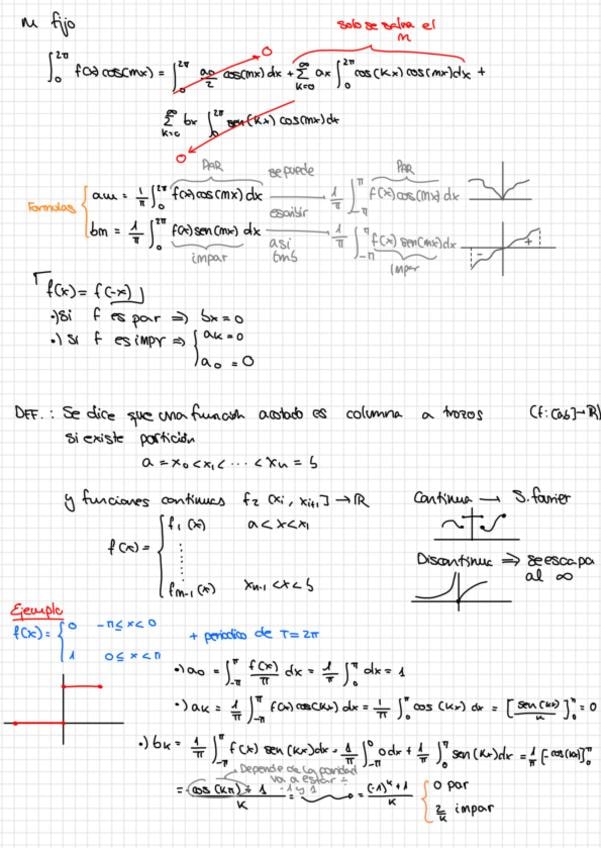 m fijo
solo se salva el m
∫₀^{2π} f(x) cos(mx) = ∫₀^{2π} a₀/2 cos(mx) dx + Σ_{k=0}^∞ ax ∫₀^{2π} cos(kx) cos(mx) dx +
0
Σ_{k=0}^∞ bx ∫₀^{2π} sen(kx) cos(mx) dx
0
PAR se puede PAR
Formulas
am = 1/π ∫₀^{2π} f(x) cos(mx) dx —— 1/π ∫_{-π}^{π} f(x) cos(mx) dx
escribir
bm = 1/π ∫₀^{2π} f(x) sen(mx) dx —— 1/π ∫_{-π}^{π} f(x) sen(mx) dx
impar así tmb Impar
- +
f(x) = f(-x)
·) si f es par ⇒ bx = 0
·) si f es impr ⇒ { ak = 0
a₀ = 0
DEF.: Se dice que una función acotado es columna a trozos (f: [ab] → ℝ)
si existe partición
a = x₀ < x₁ < ··· < xn = b
y funciones continuas f₂ (xi, xi+1] → ℝ
Continua → S. fourier
f(x) = { f₁(x) a < x < x₁
⋮
fm-1(x) xn-1 < x < b
Discontinuc ⇒ se escapa al ∞
Ejemplo
f(x) = { 0 -π ≤ x < 0
1 0 ≤ x < π
+ periodico de T = 2π
·) a₀ = ∫_{-π}^{π} f(x)/π dx = 1/π ∫₀^{π} dx = 1
·) ak = 1/π ∫_{-π}^{π} f(x) cos(kx) dx = 1/π ∫₀^{π} cos(kx) dx = [sen(kx)/k]₀^π = 0
·) bk = 1/π ∫_{-π}^{π} f(x) sen(kx) dx = 1/π ∫_{-π}^{0} 0 dx + 1/π ∫₀^{π} sen(kx) dx = 1/π [-cos(kx)]₀^π
Depende de la paridad va a estar
-1 y 1
= cos(kπ) + 1 / k = = (-1)^k + 1 / k { 0 par
2/k impar